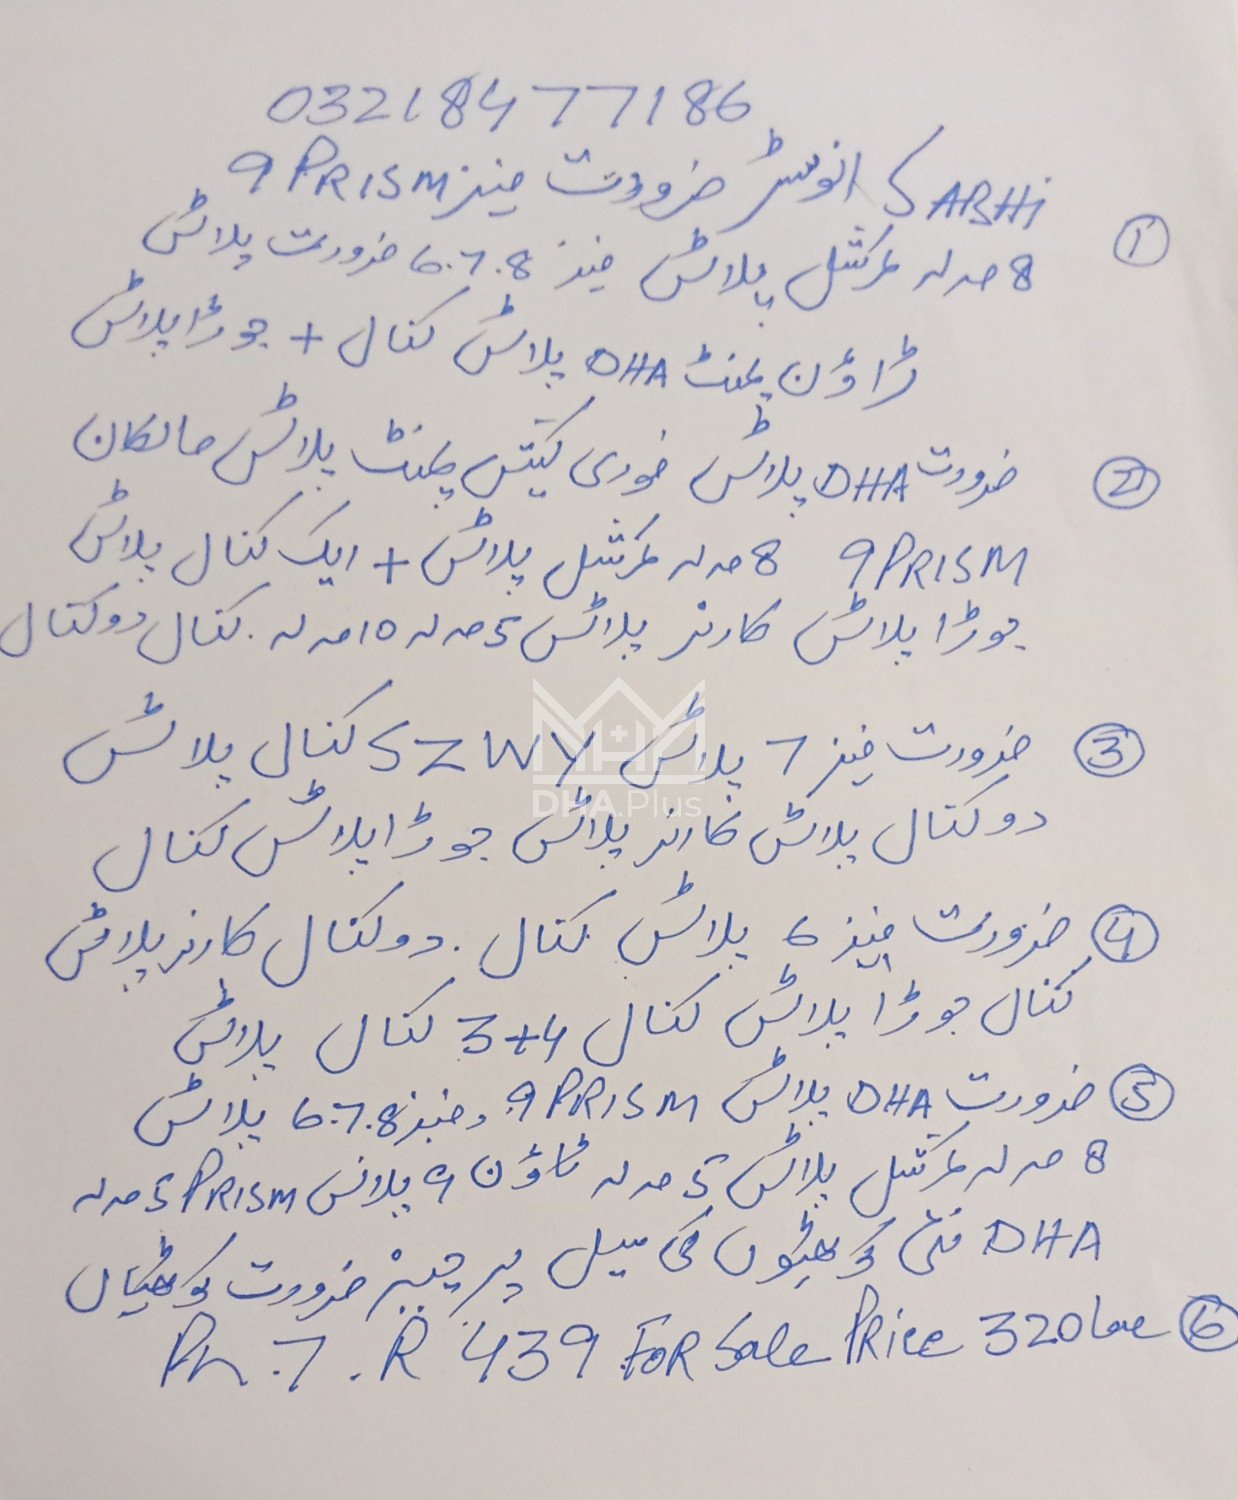 03218477186
SARHi انوسٹر ضرورت فیز 9 PRISM
① 8 مرلہ کمرشل پلاٹس فیز 6.7.8 ضرورت پلاٹس
ڈاؤن پمنٹ DHA پلاٹس کنال + جوڑا پلاٹس
② ضرورت DHA پلاٹس فوری کیش پمنٹ پلاٹس مالکان
9 PRISM 8 مرلہ کمرشل پلاٹس + ایک کنال پلاٹس
جوڑا پلاٹس کارنر پلاٹس 5 مرلہ 10 مرلہ . کنال دو کنال
③ ضرورت فیز 7 پلاٹس S Z W Y کنال پلاٹس
دو کنال پلاٹس کارنر پلاٹس جوڑا پلاٹس کنال
DHA.Plus
④ ضرورت فیز 6 پلاٹس کنال . دو کنال کارنر پلاٹس
کنال جوڑا پلاٹس کنال 3+4 کنال پلاٹس
⑤ ضرورت DHA پلاٹس 9 PRISM , فیز 6.7.8 پلاٹس
8 مرلہ کمرشل پلاٹس 5 مرلہ ٹاؤن 9 پلاٹس PRISM 5 مرلہ
DHA نئی کوٹھیوں کی سیل پرچیز ضرورت کوٹھیاں
⑥ Ph.7.R 439 FOR Sale PRice 320 lac